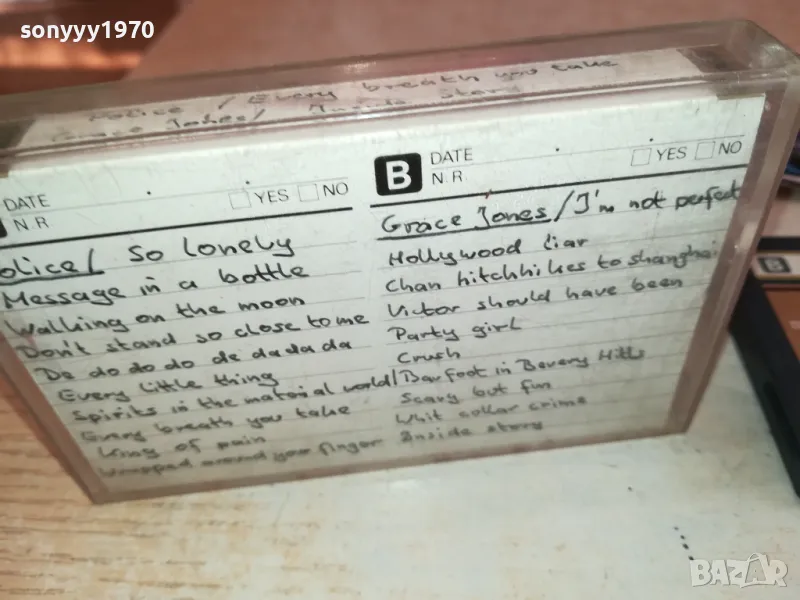 sonyyy1970
Police / Every breath you take
Grace Jones / Inside story
DATE
N R
YES NO
olice/ So Lonely
Message in a bottle
Walking on the moon
Don't stand so close to me
De do do do de da da da
Every little thing
Spirits in the material world/
Every breath you take
King of pain
Wrapped around your finger
B DATE
N R
YES NO
Grace Jones/I'm not perfect
Hollywood Liar
Chan hitchhikes to shanghai
Victor should have been
Party girl
Crush
Barfoot in Bevery Hills
Scary but fun
Whit collar crime
Inside story
B
BAZAR